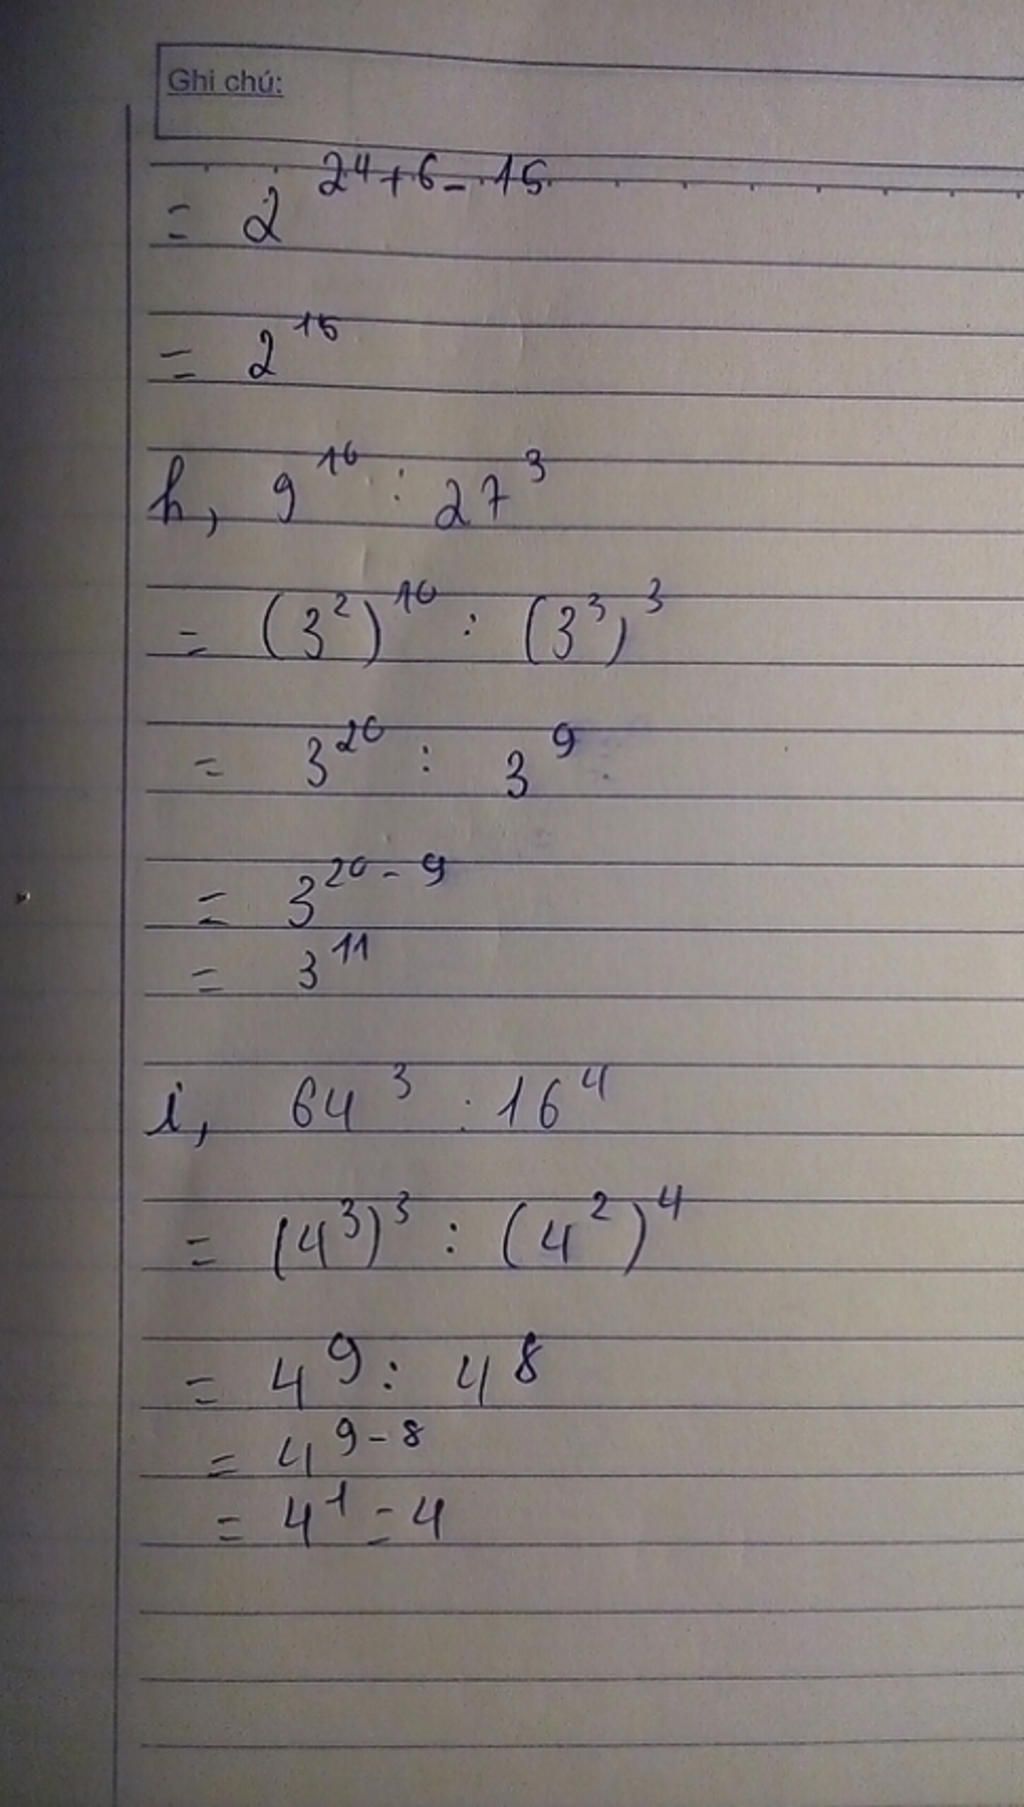 Ghi chú:
= 2^{24+6-15}
= 2^{15}
h, 9^{10} : 27^3
= (3^2)^{10} : (3^3)^3
= 3^{20} : 3^9
= 3^{20-9}
= 3^{11}
i, 64^3 : 16^4
= (4^3)^3 : (4^2)^4
= 4^9 : 4^8
= 4^{9-8}
= 4^1 = 4